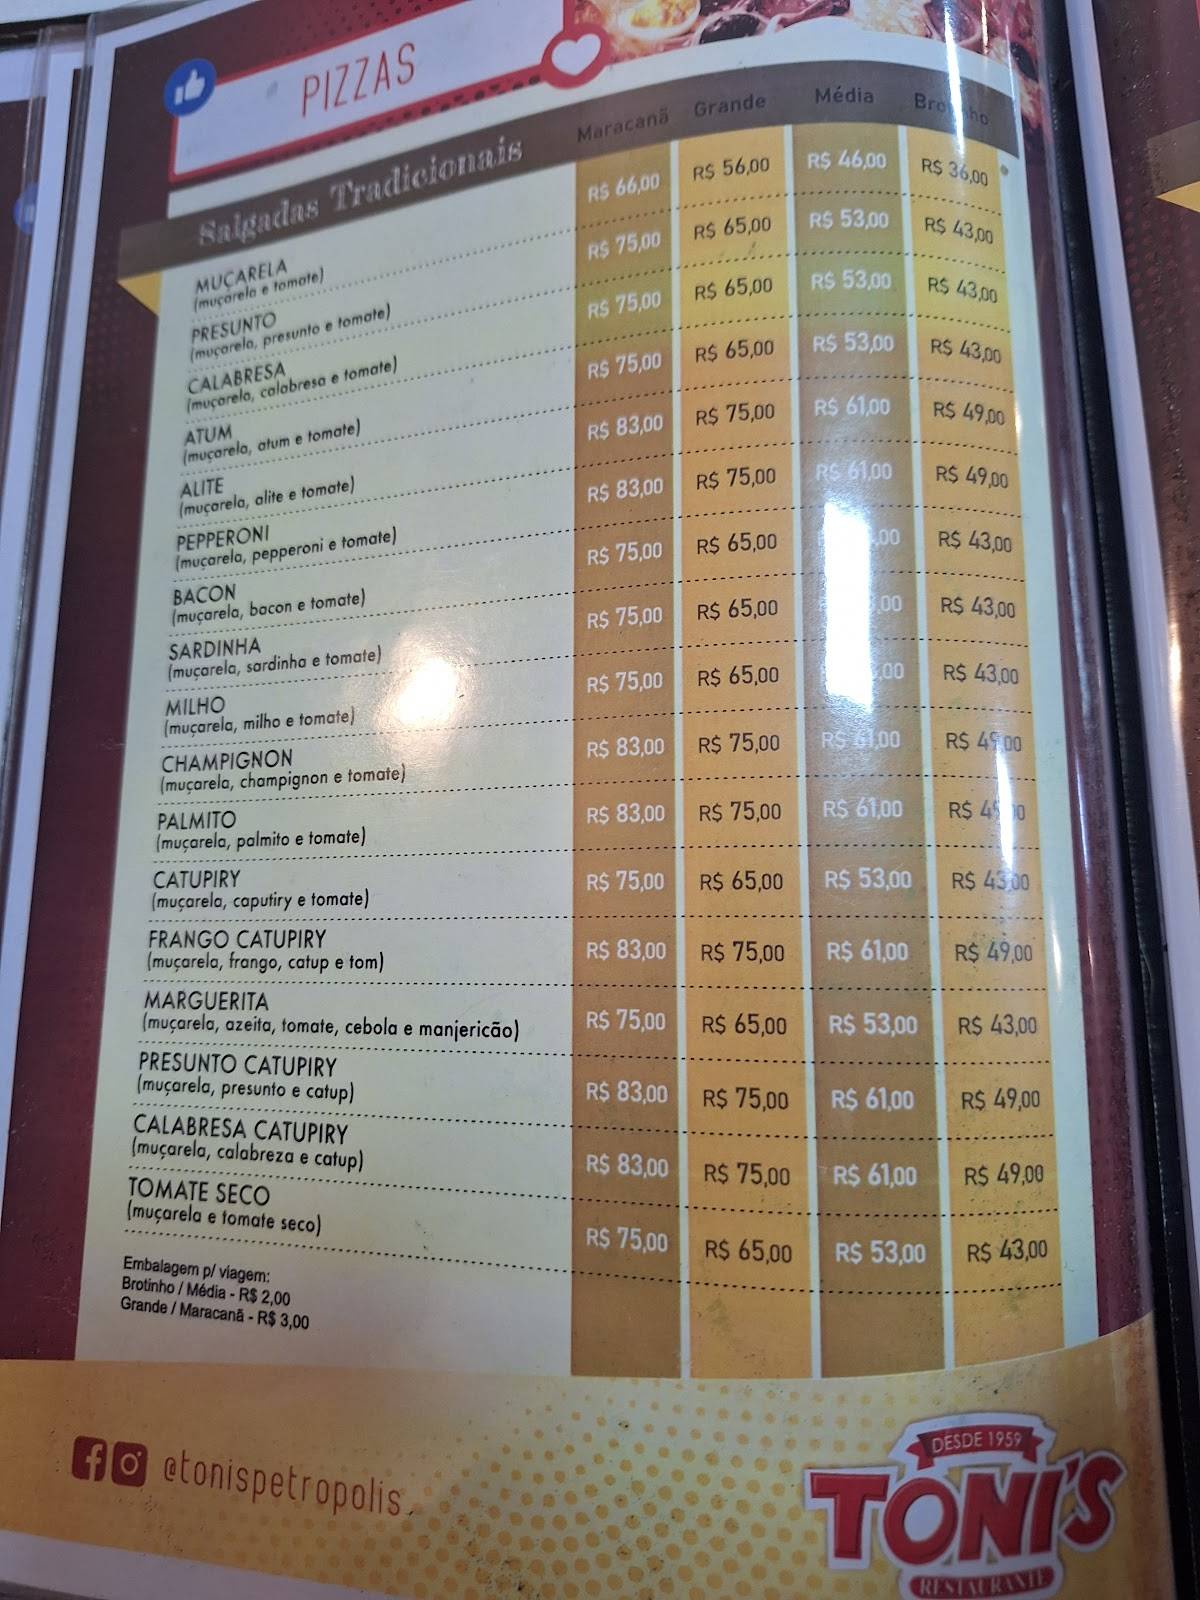 PIZZAS
Salgadas Tradicionais Maracanã Grande Média Brotinho
MUÇARELA R$ 66,00 R$ 56,00 R$ 46,00 R$ 36,00
(muçarela e tomate)
PRESUNTO R$ 75,00 R$ 65,00 R$ 53,00 R$ 43,00
(muçarela, presunto e tomate)
CALABRESA R$ 75,00 R$ 65,00 R$ 53,00 R$ 43,00
(muçarela, calabresa e tomate)
ATUM R$ 75,00 R$ 65,00 R$ 53,00 R$ 43,00
(muçarela, atum e tomate)
ALITE R$ 83,00 R$ 75,00 R$ 61,00 R$ 49,00
(muçarela, alite e tomate)
PEPPERONI R$ 83,00 R$ 75,00 R$ 61,00 R$ 49,00
(muçarela, pepperoni e tomate)
BACON R$ 75,00 R$ 65,00 R$ 43,00
(muçarela, bacon e tomate)
SARDINHA R$ 75,00 R$ 65,00 R$ 43,00
(muçarela, sardinha e tomate)
MILHO R$ 75,00 R$ 65,00 R$ 43,00
(muçarela, milho e tomate)
CHAMPIGNON R$ 83,00 R$ 75,00 R$ 61,00 R$ 49,00
(muçarela, champignon e tomate)
PALMITO R$ 83,00 R$ 75,00 R$ 61,00 R$
(muçarela, palmito e tomate)
CATUPIRY R$ 75,00 R$ 65,00 R$ 53,00 R$ 43,00
(muçarela, caputiry e tomate)
FRANGO CATUPIRY R$ 83,00 R$ 75,00 R$ 61,00 R$ 49,00
(muçarela, frango, catup e tom)
MARGUERITA R$ 75,00 R$ 65,00 R$ 53,00 R$ 43,00
(muçarela, azeita, tomate, cebola e manjericão)
PRESUNTO CATUPIRY R$ 83,00 R$ 75,00 R$ 61,00 R$ 49,00
(muçarela, presunto e catup)
CALABRESA CATUPIRY R$ 83,00 R$ 75,00 R$ 61,00 R$ 49,00
(muçarela, calabreza e catup)
TOMATE SECO R$ 75,00 R$ 65,00 R$ 53,00 R$ 43,00
(muçarela e tomate seco)
Embalagem p/ viagem:
Brotinho / Média - R$ 2,00
Grande / Maracanã - R$ 3,00
@tonispetropolis
DESDE 1959
TONI'S
RESTAURANTE